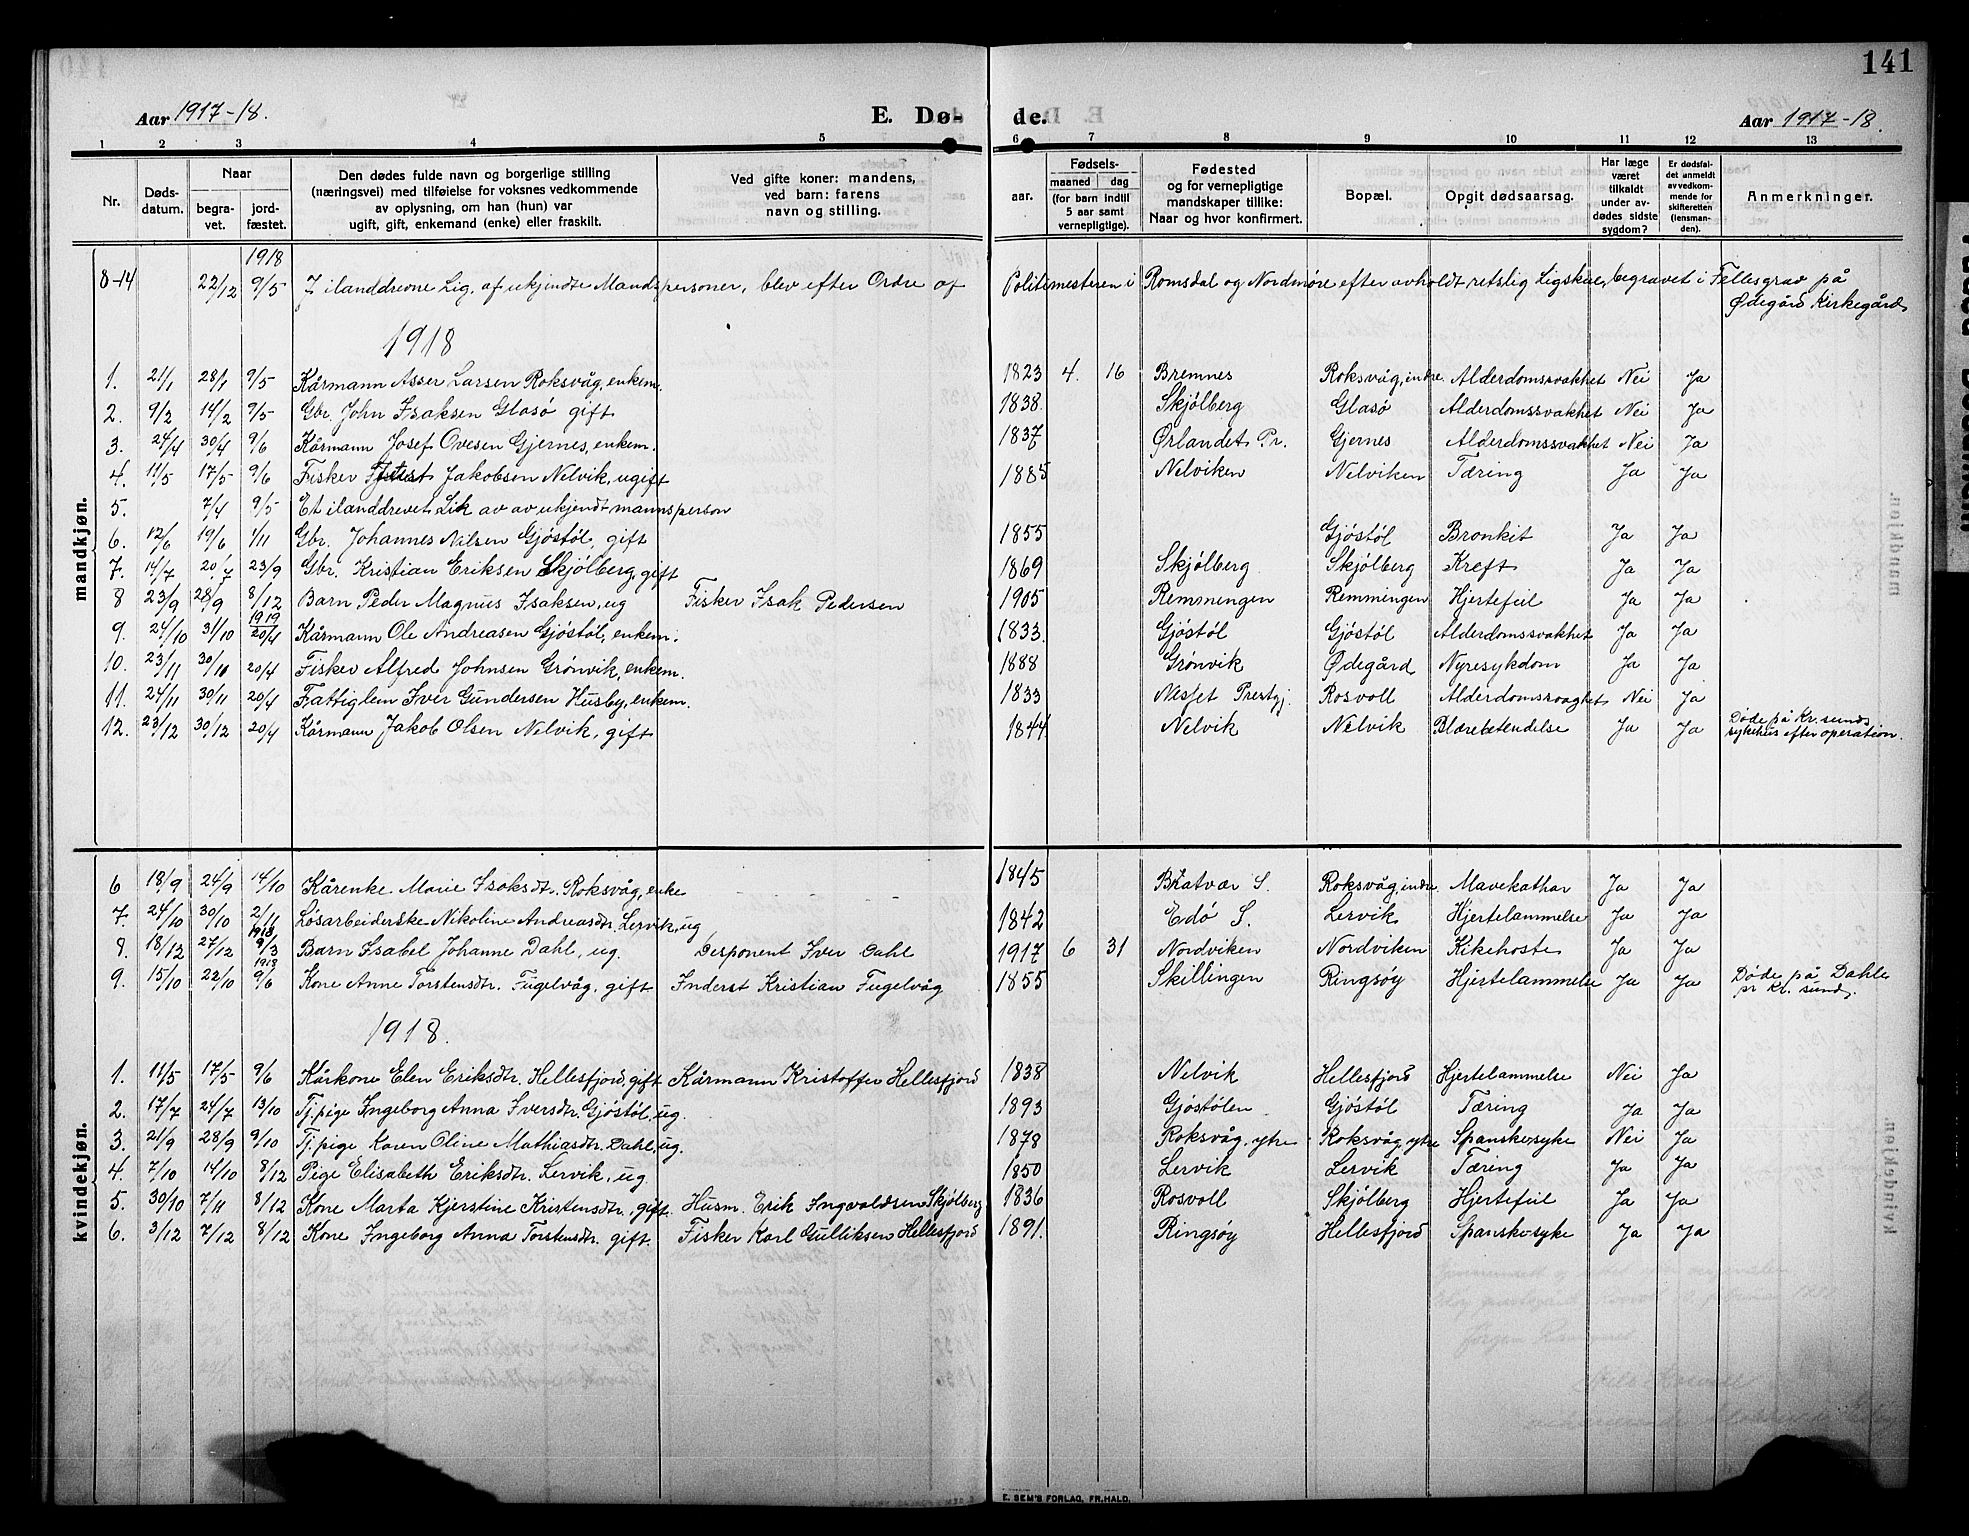 141
Aar 1917-18. E. Dø- de. Aar 1917-18.
1 2 3 4 5 6 7 8 9 10 11 12 13
Nr. Døds-datum. Naar begra-vet. jord-fæstet. Den dødes fulde navn og borgerlige stilling (næringsvei) med tilføielse for voksnes vedkommende av oplysning, om han (hun) var ugift, gift, enkemand (enke) eller fraskilt. Ved gifte koner: mandens, ved barn: farens navn og stilling. Fødsels- aar. maaned dag (for barn indtil 5 aar samt vernepligtige). Fødested og for vernepligtige mandskaper tillike: Naar og hvor konfirmert. Bopæl. Opgit dødsaarsag. Har læge været tilkaldt under av-dødes sidste sygdom? Er dødsfal-det anmeldt av vedkom-mende for skifteretten (lensman-den). Anmerkninger.
mandkjøn.
1918
8-14 22/12 9/5 7 ilanddrevne Lig, af ukjendte Mandspersoner, blev efter Ordre af Politimesteren i Romsdal og Nordmøre efter avholdt retslig Ligskue, begravet i Fellesgrav på
Ødegård Kirkegård
1918
1. 21/1 28/1 9/5 Kårmann Asser Larsen Roksvåg, enkem. 1823 4. 16 Bremnes Roksvåg, indre. Alderdomssvakhet Nei Ja
2. 9/2 14/2 9/5 Gbr. John Isaksen Glasø gift 1838. Skjølberg Glasø Alderdomssvakhet Nei Ja
3. 24/4 30/4 9/6 Kårmann Josef Ovesen Gjernes, enkem. 1837 Ørlandet Pr. Gjernes Alderdomssvakhet Nei Ja
4. 11/5 17/5 9/6 Fisker Jakobsen Nelvik, ugift 1885 Nelviken Nelviken Tæring Ja Ja
5. 7/4 9/5 Et ilanddrevet Lik av av ukjendt mannsperson
6. 12/6 19/6 4/11 Gbr. Johannes Nilsen Gjøstøl, gift 1855 Gjøstøl Bronkit Ja Ja
7. 14/7 20/7 23/9 Gbr. Kristian Eriksen Skjølberg, gift 1869 Skjølberg Skjølberg Kreft Ja Ja
8 23/9 28/9 8/12 Barn Peder Magnus Isaksen, ug Fisker Isak Pedersen 1905 Remmingen Remmingen Hjertefeil Ja Ja
9. 24/10 31/10 1919 20/4 Kårmann Ole Andreasen Gjøstøl, enkem. 1833. Gjøstøl Gjøstøl Alderdomssvakhet Ja Ja
10. 23/11 30/10 20/4 Fisker Alfred Johnsen Grønvik, enkem. 1888 Grønvik Ødegård Nyresykdom Ja Ja
11. 24/11 30/11 20/4 Fattiglem Iver Gundersen Husby, enkem. 1833 Nesset Prestgj. Rosvoll Alderdomssvaghet Nei Ja
12. 23/12 30/12 20/4 Kårmann Jakob Olsen Nelvik, gift 1844 Nelvik Nelvik Blærebetendelse Ja Ja Døde på Kr. sunds sykehus efter operation.
kvindekjøn.
6 18/9 24/9 14/10 Kårenke Marie Isaksdtr. Roksvåg, enke 1845 Bratvær S. Roksvåg, indre. Mavekathar Ja Ja
7. 24/10 30/10 2/11 Løsarbeiderske Nikoline Andreasdtr. Lervik, ug 1842 Edø S. Lervik Hjertelammelse Ja Ja
8. 18/12 27/12 1918 9/3 Barn Isabel Johanne Dahl, ug. Desponent Iver Dahl 1917 6 31 Nordviken Nordviken Kikehoste Ja Ja
9. 15/10 22/10 1918 9/6 Kone Anne Torstensdtr. Fugelvåg, gift Inderst Kristian Fugelvåg 1855 Skillingen Ringsøy Hjertelammelse Ja Ja Døde på Dahle pr Kr. sund.
1918.
1. 11/5 17/5 9/6 Kårkone Elen Eriksdtr. Hellesfjord, gift Kårmann Kristoffer Hellesfjord 1838 Nelvik Hellesfjord Hjertelammelse Nei Ja
2. 17/7 24/7 13/10 Tj. pige Ingeborg Anna Iversdtr. Gjøstøl, ug. 1893 Gjøstølen Gjøstøl Tæring Ja Ja
3. 21/9 28/9 9/10 Tj. pige Karen Oline Mathiasdtr. Dahl, ug. 1878 Roksvåg, ytre Roksvåg, ytre Spanskesyke Nei Ja
4. 7/10 14/10 8/12 Pige Elisabeth Eriksdtr. Lervik, ug 1850 Lervik Lervik Tæring Ja Ja
5. 30/10 7/11 8/12 Kone Marta Kjerstine Kristensdtr., gift. Husm. Erik Ingvaldsen Skjølberg 1836 Rosvoll Skjølberg Hjertefeil Ja Ja
6. 3/12 7/12 8/12 Kone Ingeborg Anna Torstensdtr. gift. Fisker Karl Gulliksen Hellesfjord 1891. Ringsøy Hellesfjord Spanskesyke Ja Ja
E. SEM'S FORLAG, FR.HALD.